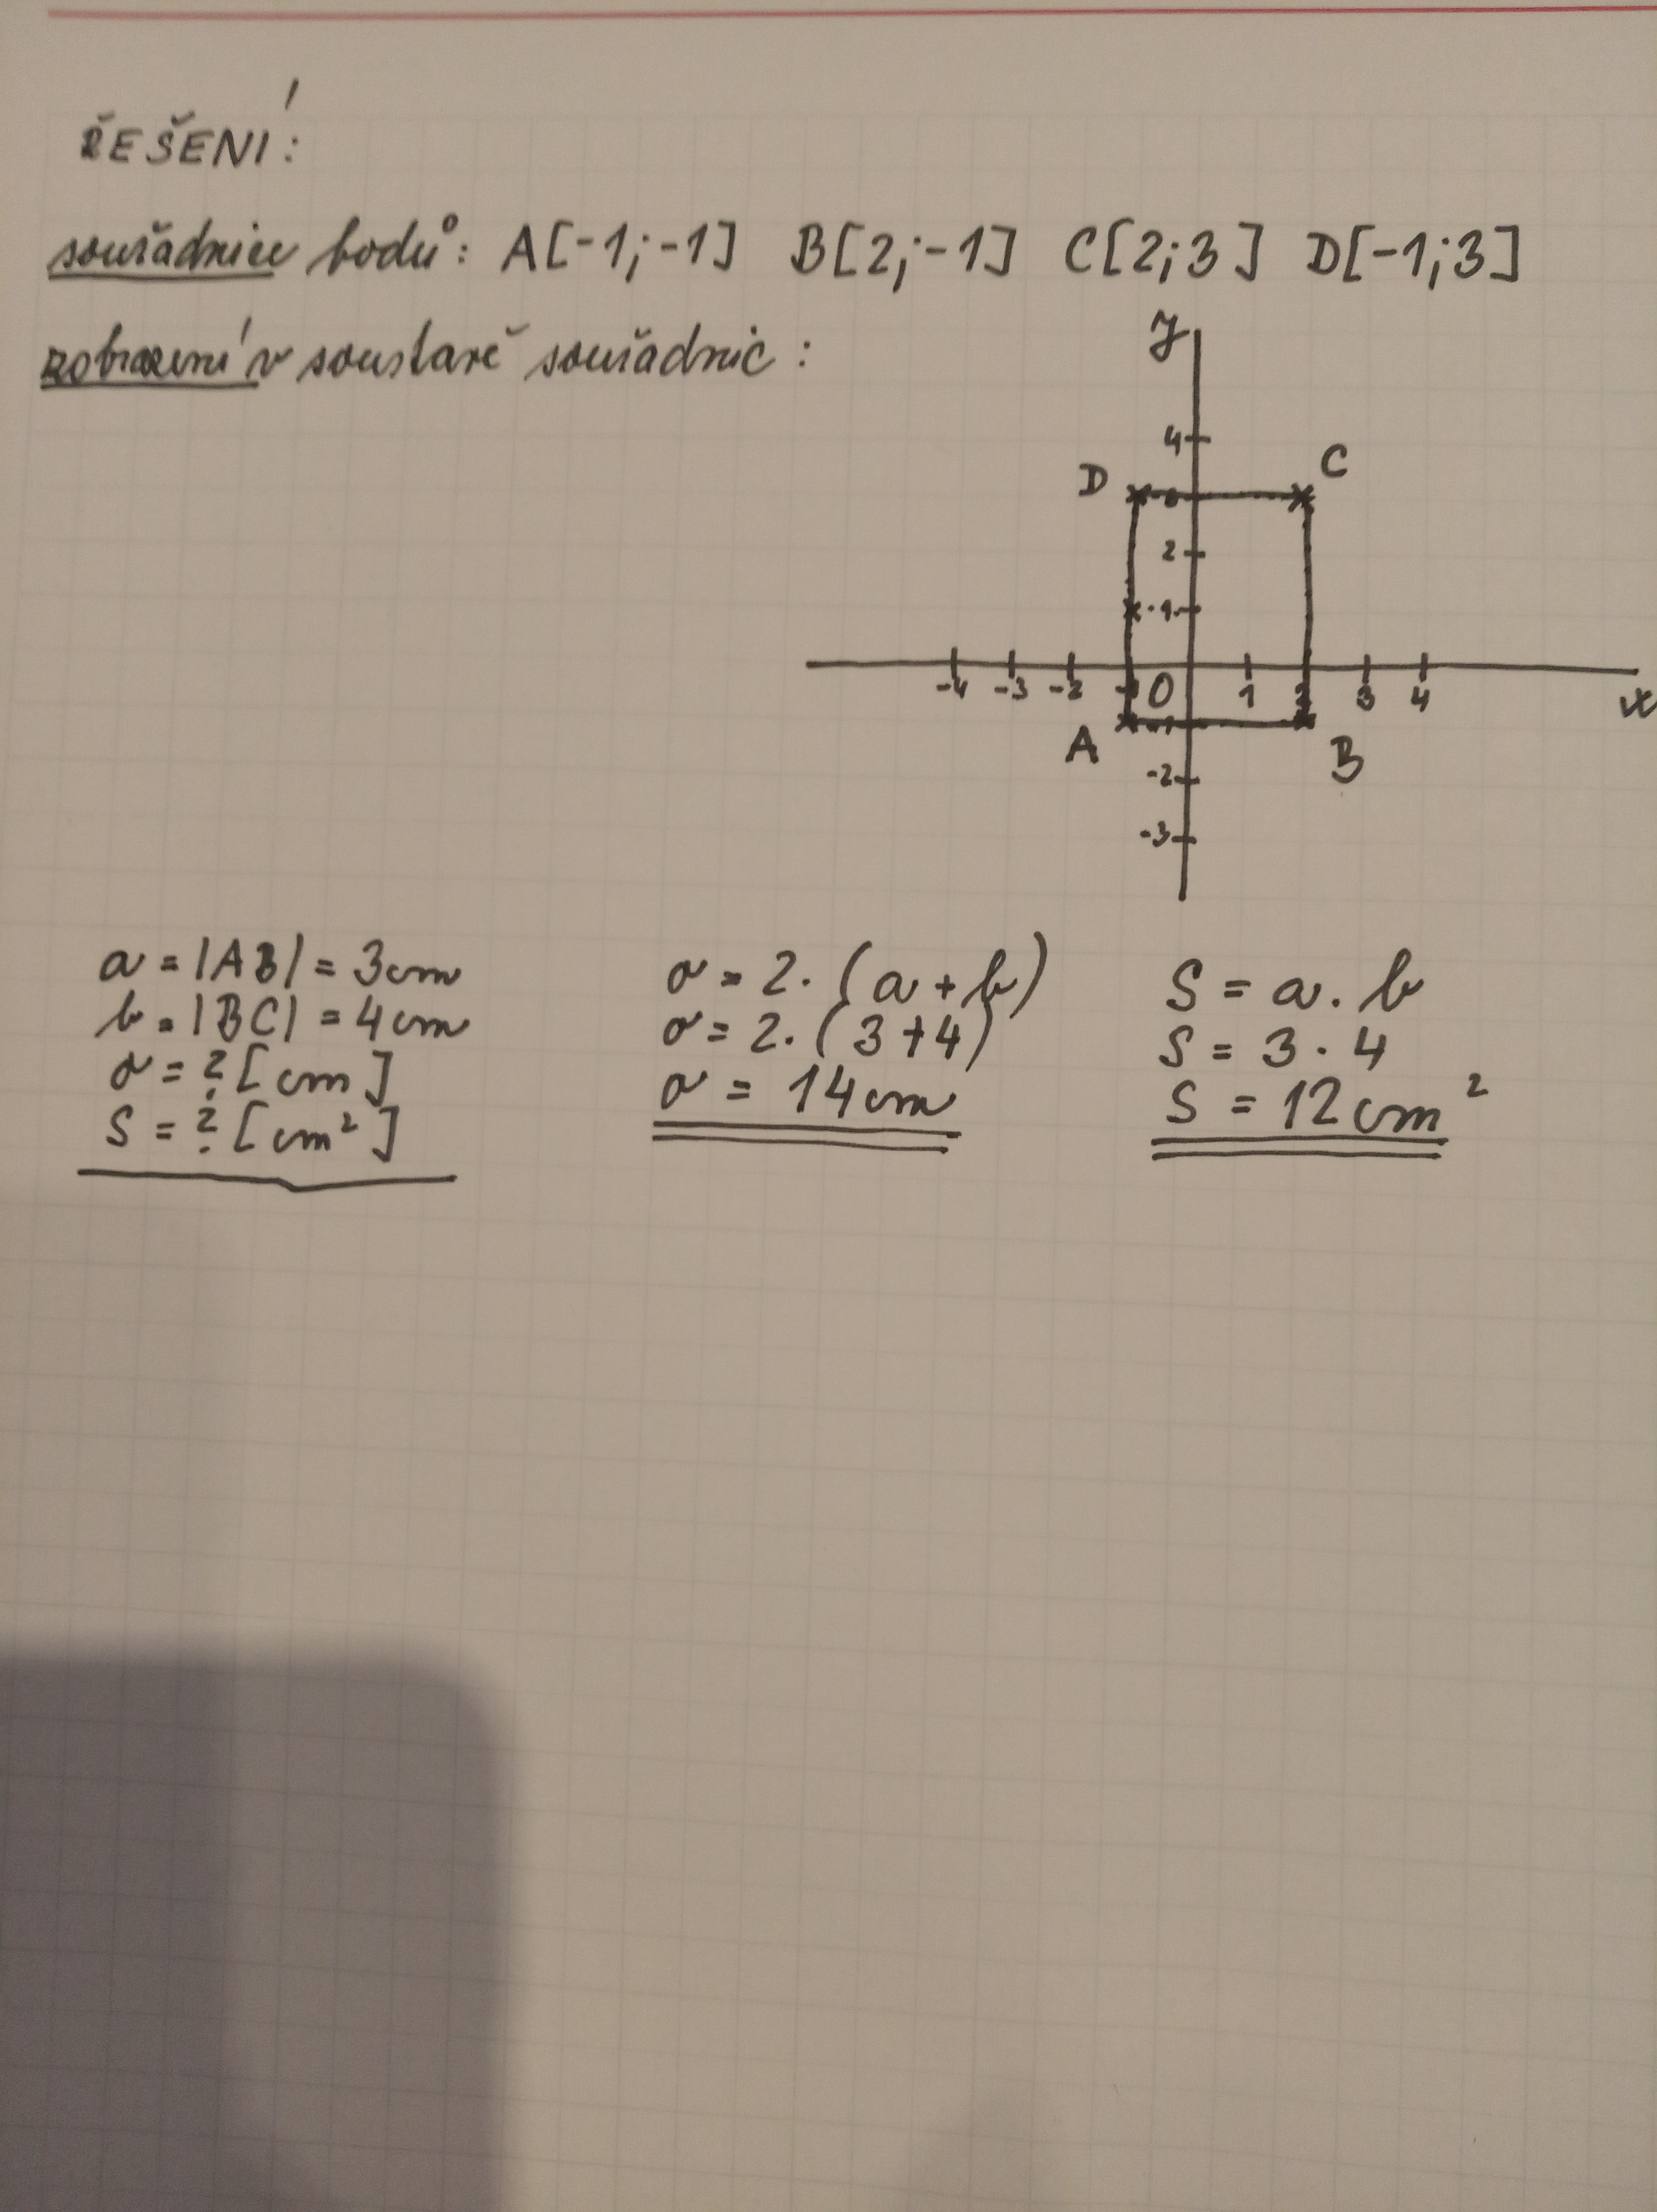 ŘEŠENÍ:
souřadnice bodů: A[-1;-1] B[2;-1] C[2;3] D[-1;3]
zobrazení v soustavě souřadnic:
y
4
D C
3
2
1
-4 -3 -2 -1 0 1 2 3 4 x
-1
A B
-2
-3
a = |AB| = 3cm
b = |BC| = 4cm
o = ? [cm]
S = ? [cm²]
o = 2. (a + b)
o = 2. (3+4)
o = 14cm
S = a. b
S = 3 . 4
S = 12cm²